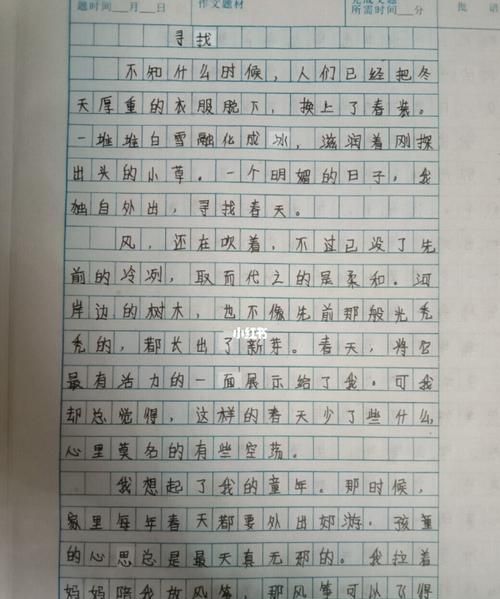 题时间___月___日 作文题材 完成文题 批 语
所需时间___分
寻找
不知什么时候，人们已经把冬
天厚重的衣服脱下，换上了春装。
一堆堆白雪融化成冰，滋润着刚探
出头的小草。一个明媚的日子，我
独自外出，寻找春天。
风，还在吹着，不过已没了先
前的冷冽，取而代之的是柔和。河
岸边的树木，也不像先前那般光秃
秃的，都长出了新芽。春天，将它
最有活力的一面展示给了我。可我
却总觉得，这样的春天少了些什么，
心里莫名的有些空荡。
我想起了我的童年。那时候，
家里每年春天都要外出郊游。孩童
的心思总是最天真无邪的。我拉着
妈妈陪我放风筝，那风筝可从了得
小红书